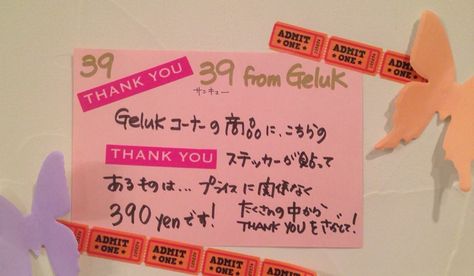 ADMIT ONE ADMIT ONE ADMIT ONE
39
THANK YOU
39 from Geluk
サンキュー
Geluk コーナーの商品に、こちらの
THANK YOU ステッカーが貼って
あるものは… プライスに関係なく
390 yenです! たくさんの中から
THANK YOUをさがして!
ADMIT ONE ADMIT ONE ADMIT ONE ADMIT ONE